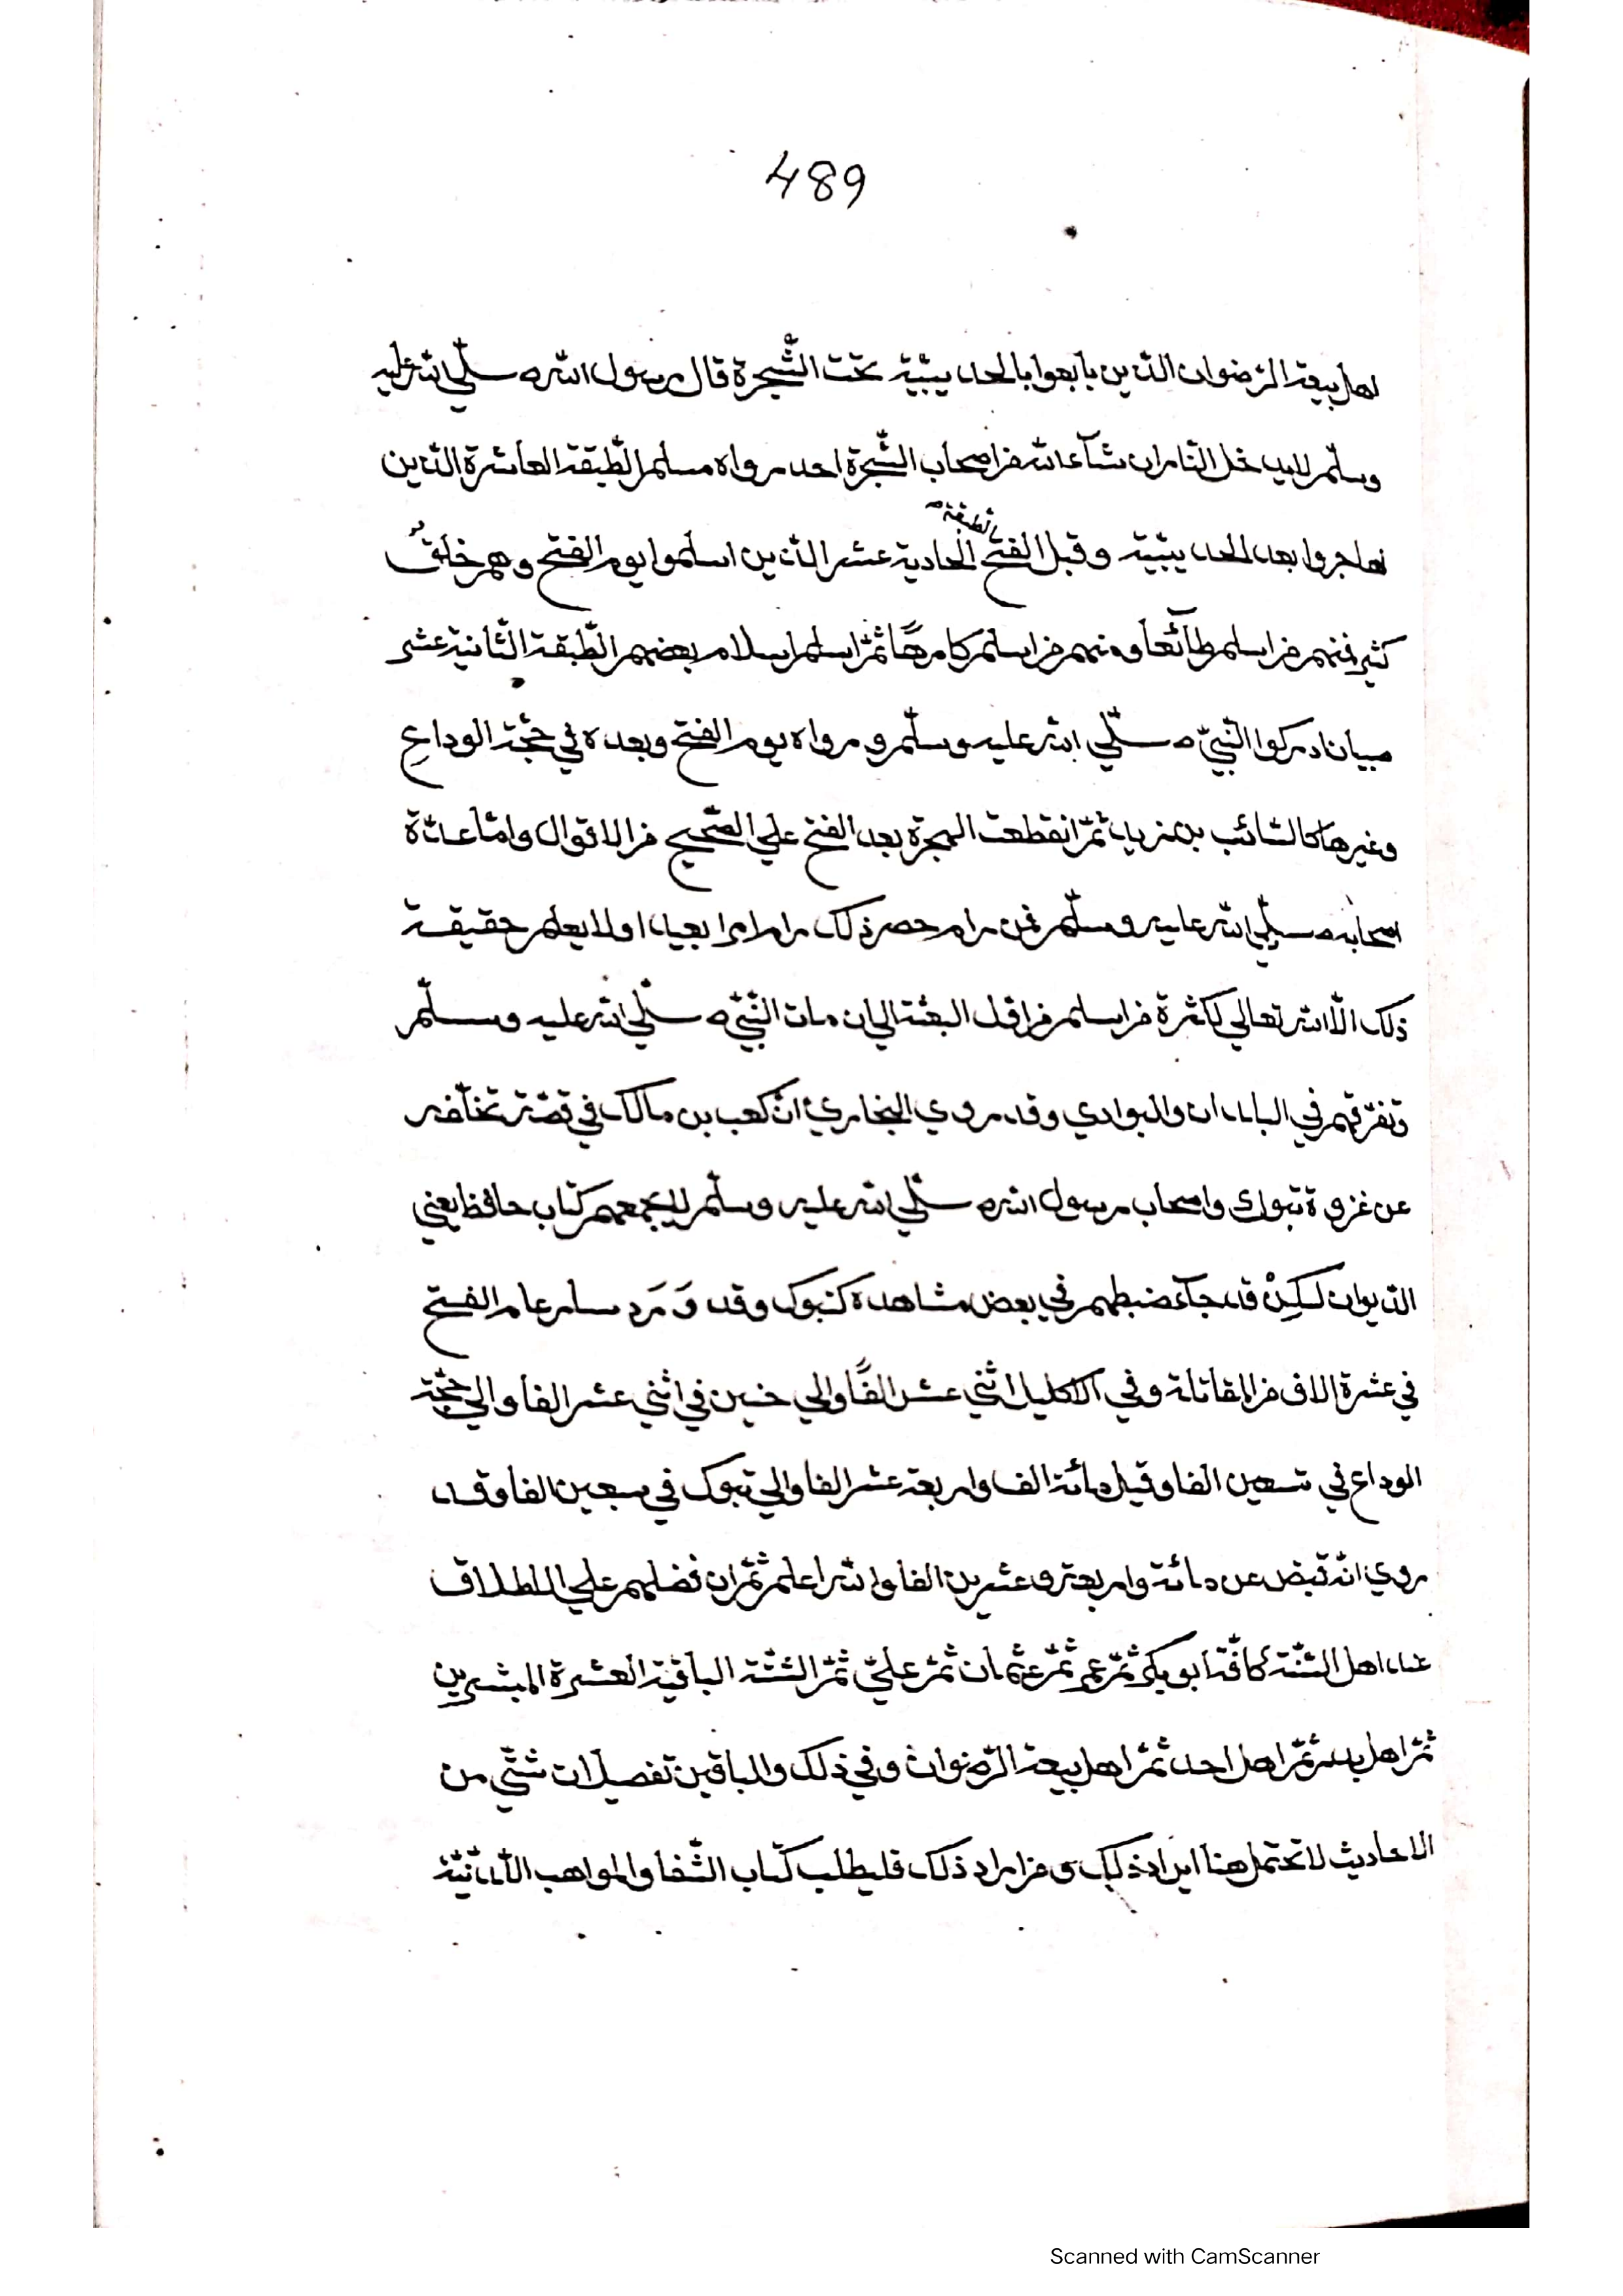 489
اهل بيعة الرّضوان الّذين بايعوا بالحديبيّة تحت الشّجرة قال رسول اللّه صلّي اللّه عليه
وسلّم لايدخل النّار ان شآء اللّه من اصحاب الشّجرة احد رواه مسلم الطّبقة العاشرة الّذين
هاجروا بعد الحديبيّة وقبل الفتح الطبقة الحادية عشر الّذين اسلموا يوم الفتح وهم خلقٌ
كثير فمنهم من اسلم طآئعا ومنهم من اسلم كارهًا ثمّ اسلم اسلام بعضهم الطّبقة الثّانية عشر
صبيان ادركوا النّبيّ صلّي اللّه عليه وسلّم و رواه يوم الفتح وبعده في حجّة الوداع
وغيرها كالسّائب بن يزيد ثمّ انقطعت الهجرة بعد الفتح علي الصّحيح من الاقوال وامّا عدّة
اصحابه صلّي اللّه عليه وسلّم فمن رام حصر ذلك رام امرا بعيدا ولا يعلم حقيقة
ذلك الّا اللّه تعالي لكثرة من اسلم من اوّل البعثة الي ان مات النّبيّ صلّي اللّه عليه وسلّم
وتفرّقهم في البلدان والبوادي وقد روي البخاري انّ كعب بن مالك في قصّة تخلّفه
عن غزوة تبوك واصحاب رسول اللّه صلّي اللّه عليه وسلّم لايجمعهم كتاب حافظ يعني
الدّيوان لكِنْ قد جآء ضبطهم في بعض مشاهده كتبوك وقد وَرَد سار عام الفتح
في عشرة الاف من المقاتلة وفي الاكليل اثني عشر الفًا والي حنين في اثني عشر الفا والي حجّة
الوداع في تسعين الفا وقيل مائة الف واربعة عشر الفا والي تبوك في سبعين الفا وقد
روي انّه قبض عن مائة واربعة وعشرين الفا واللّه اعلم ثمّ ان فضلهم علي الاطلاق
عند اهل السّنّة كافّة ابو بكر ثمّ عمر ثمّ عثمان ثمّ عليّ ثمّ السّتّة الباقية العشرة المبشرين
ثمّ اهل بدر ثمّ اهل احد ثمّ اهل بيعة الرّضوان وفي ذلك والباقين تفصيلات شتّي من
الاحاديث لا تحتمل هنا ايراد ذلك و من اراد ذلك فليطلب كتاب الشّفا والمواهب اللّدنّيّة
Scanned with CamScanner